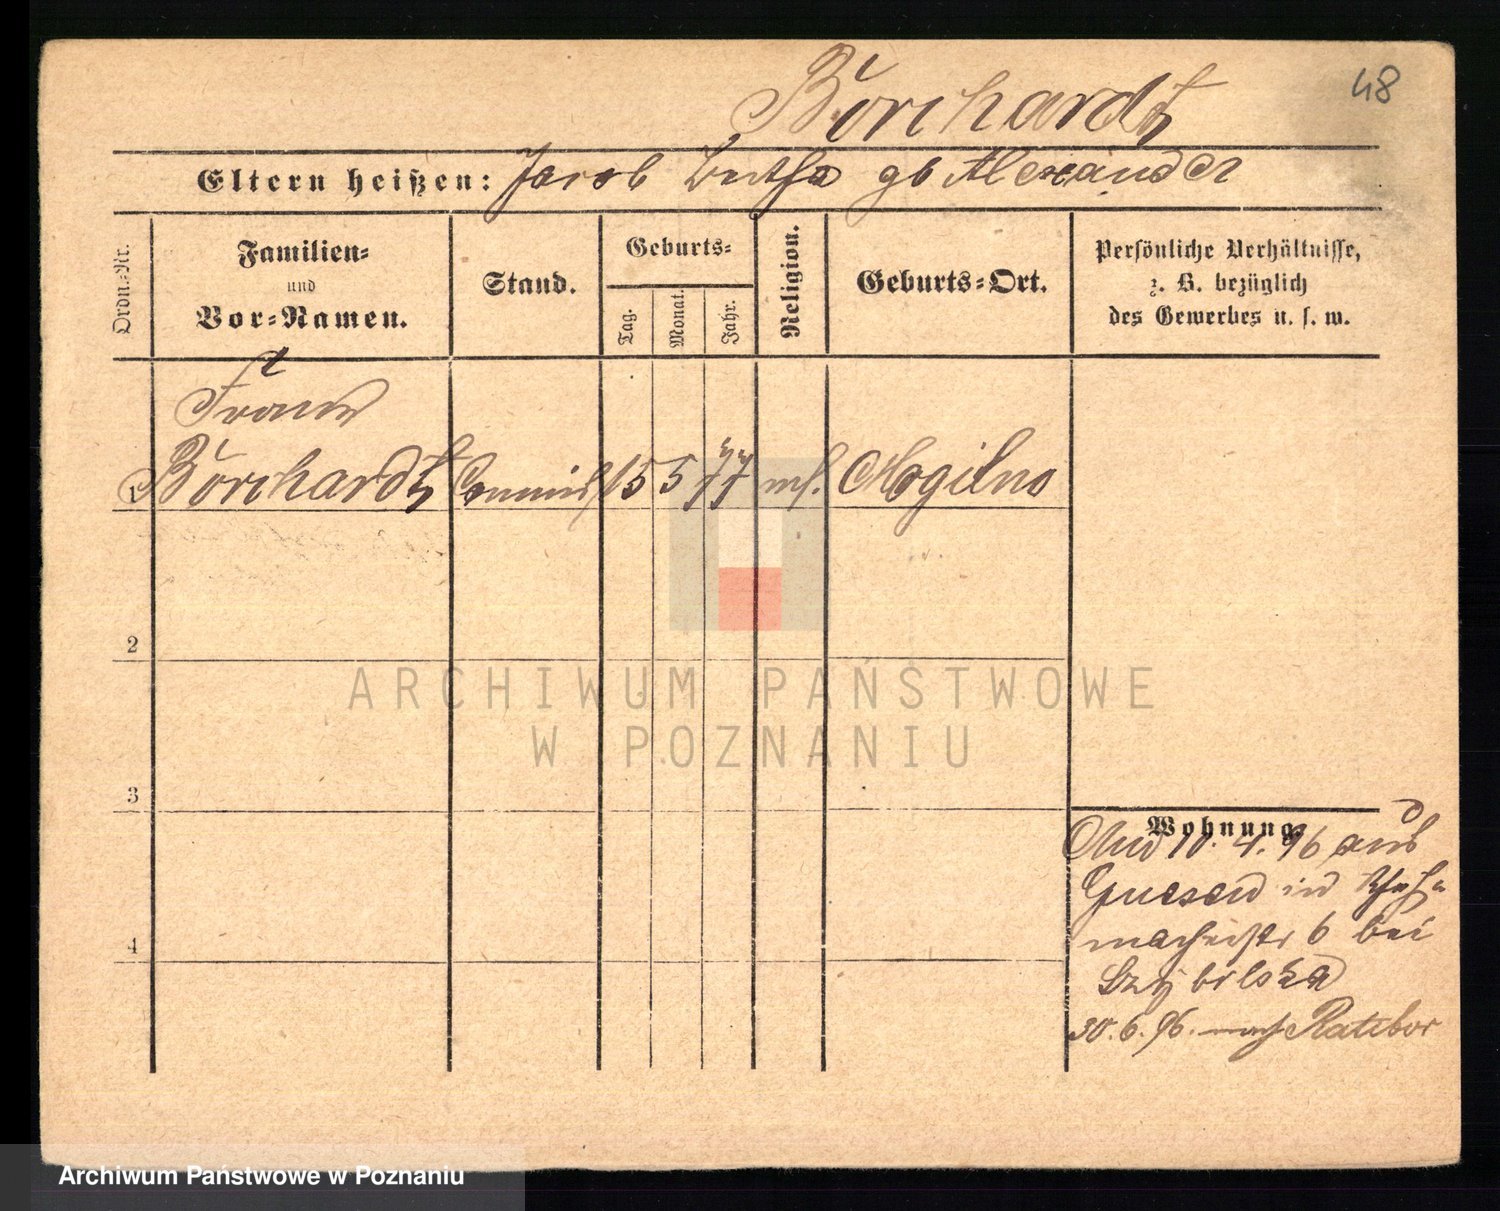 48
Borchardt
Eltern heißen: Jacob Bertha gb Alexander
Ordn.-Nr.
Familien-
und
Vor-Namen.
Stand.
Geburts-
Tag.
Monat.
Jahr.
Religion.
Geburts-Ort.
Persönliche Verhältnisse,
z. B. bezüglich
des Gewerbes u. s. w.
1 Borchardt Commis 15 5 77 mos. Mogilno
2
3
4
Wohnung.
10. 4. 96 aus
Gnesen in
macherstr 6 bei
30. 6. 96. nach Ratibor
ARCHIWUM PAŃSTWOWE
W POZNANIU
Archiwum Państwowe w Poznaniu